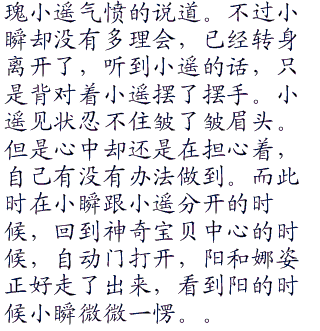 瑰小遥气愤的说道。不过小
瞬却没有多理会，已经转身
离开了，听到小遥的话，只
是背对着小遥摆了摆手。小
遥见状忍不住皱了皱眉头。
但是心中却还是在担心着，
自己有没有办法做到。而此
时在小瞬跟小遥分开的时
候，回到神奇宝贝中心的时
候，自动门打开，阳和娜姿
正好走了出来，看到阳的时
候小瞬微微一愣。。